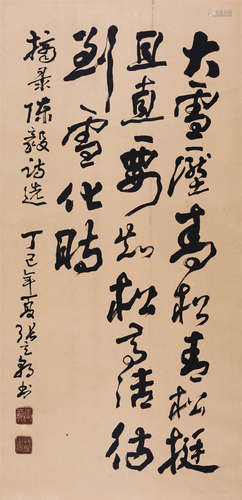 大雪壓青松青松挺
且直要知松高洁待
到雪化時
摘录陳毅诗选
丁巳年夏張立朝书